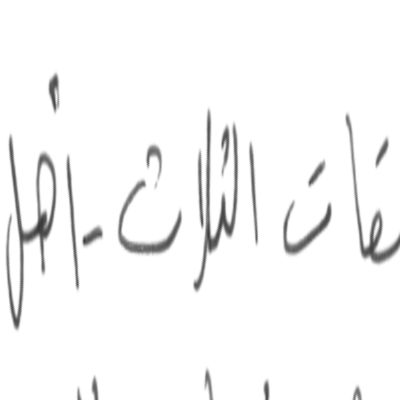 قات الثلاث - أهل